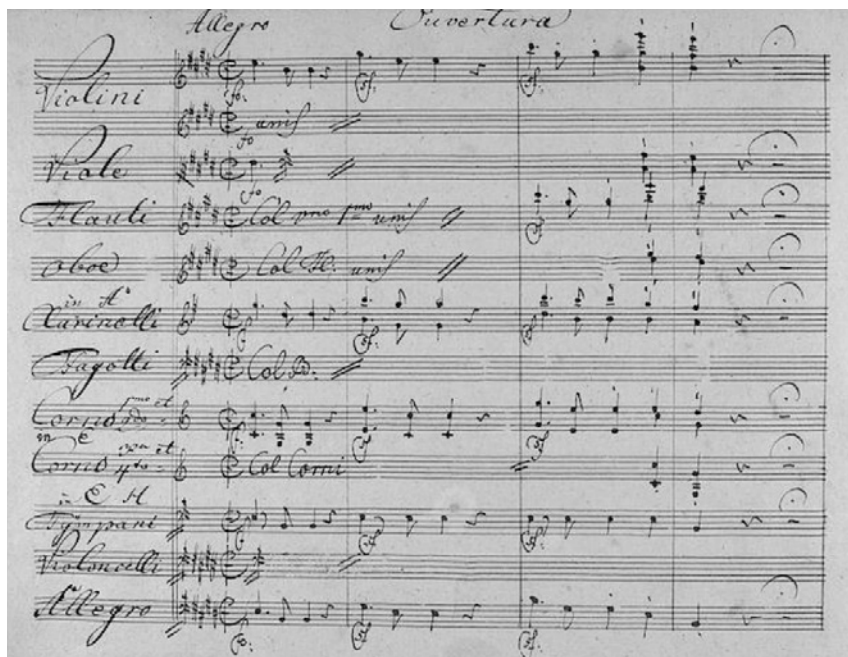 Allegro Ouvertura
Violini
fo:
sf:
sf:
unis
fo
Viole
fo
Flauti Col pmo 1mo unis
Oboe Col Fl: unis
in A
Clarinetti
sf:
sf:
Fagotti Col B:
Corno pmo et 2do
sf:
sf:
in E
Corno 3zo et 4to Col Corni
in E H
Tympani
sf:
sf:
Violoncelli
Allegro
fo:
sf:
sf: